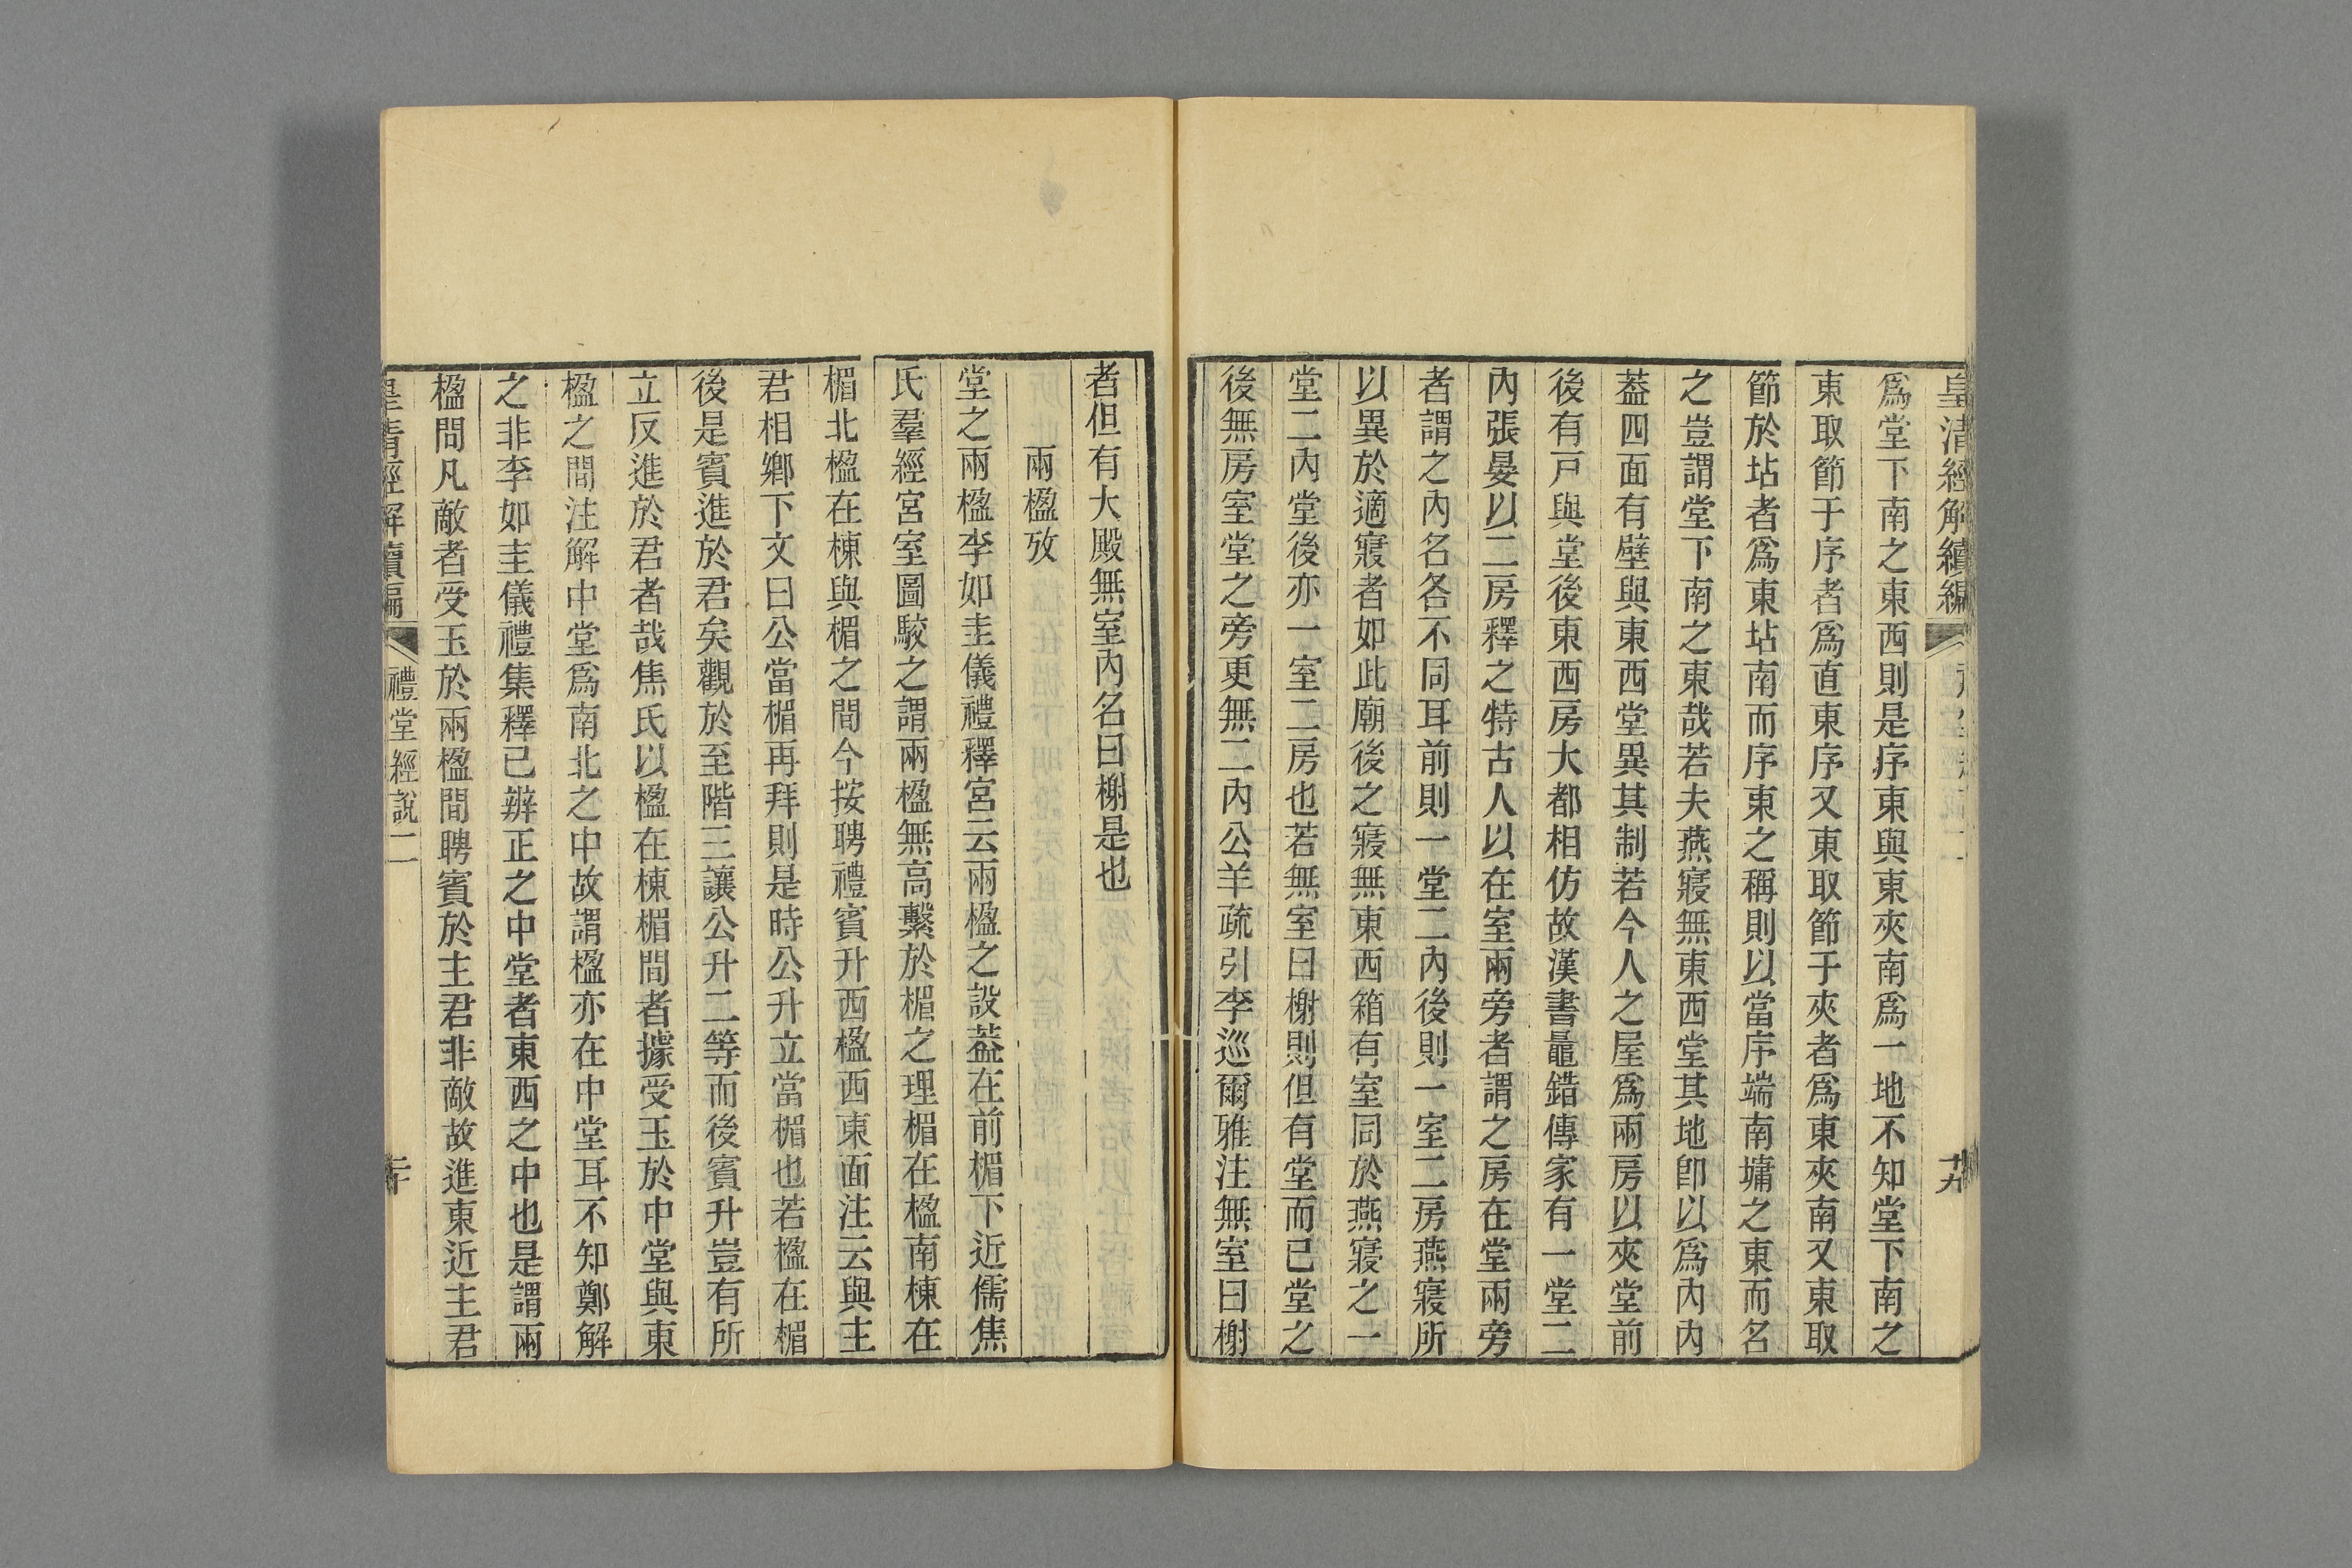 皇清經解續編
十九
爲堂下南之東西則是序東與東夾南爲一地不知堂下南之
東取節于序者爲直東序又東取節于夾者爲東夾南又東取
節於坫者爲東坫南而序東之稱則以當序端南墉之東而名
之豈謂堂下南之東哉若夫燕寢無東西堂其地卽以爲內內
葢四面有壁與東西堂異其制若今人之屋爲兩房以夾堂前
後有戸與堂後東西房大都相仿故漢書鼂錯傳家有一堂二
內張晏以二房釋之特古人以在室兩旁者謂之房在堂兩旁
者謂之內名各不同耳前則一堂二內後則一室二房燕寢所
以異於適寢者如此廟後之寢無東西箱有室同於燕寢之一
堂二內堂後亦一室二房也若無室曰榭則但有堂而已堂之
後無房室堂之旁更無二內公羊疏引李巡爾雅注無室曰榭
者但有大殿無室內名曰榭是也
兩楹攷
堂之兩楹李如圭儀禮釋宮云兩楹之設葢在前楣下近儒焦
氏羣經宮室圖駮之謂兩楹無高繫於楣之理楣在楹南棟在
楣北楹在棟與楣之間今按聘禮賓升西楹西東面注云與主
君相鄉下文曰公當楣再拜則是時公升立當楣也若楹在楣
後是賓進於君矣觀於至階三讓公升二等而後賓升豈有所
立反進於君者哉焦氏以楹在棟楣間者據受玉於中堂與東
楹之間注解中堂爲南北之中故謂楹亦在中堂耳不知鄭解
之非李如圭儀禮集釋已辨正之中堂者東西之中也是謂兩
楹問凡敵者受玉於兩楹間聘賓於主君非敵故進東近主君
皇清經解續編
禮堂經說二
二十